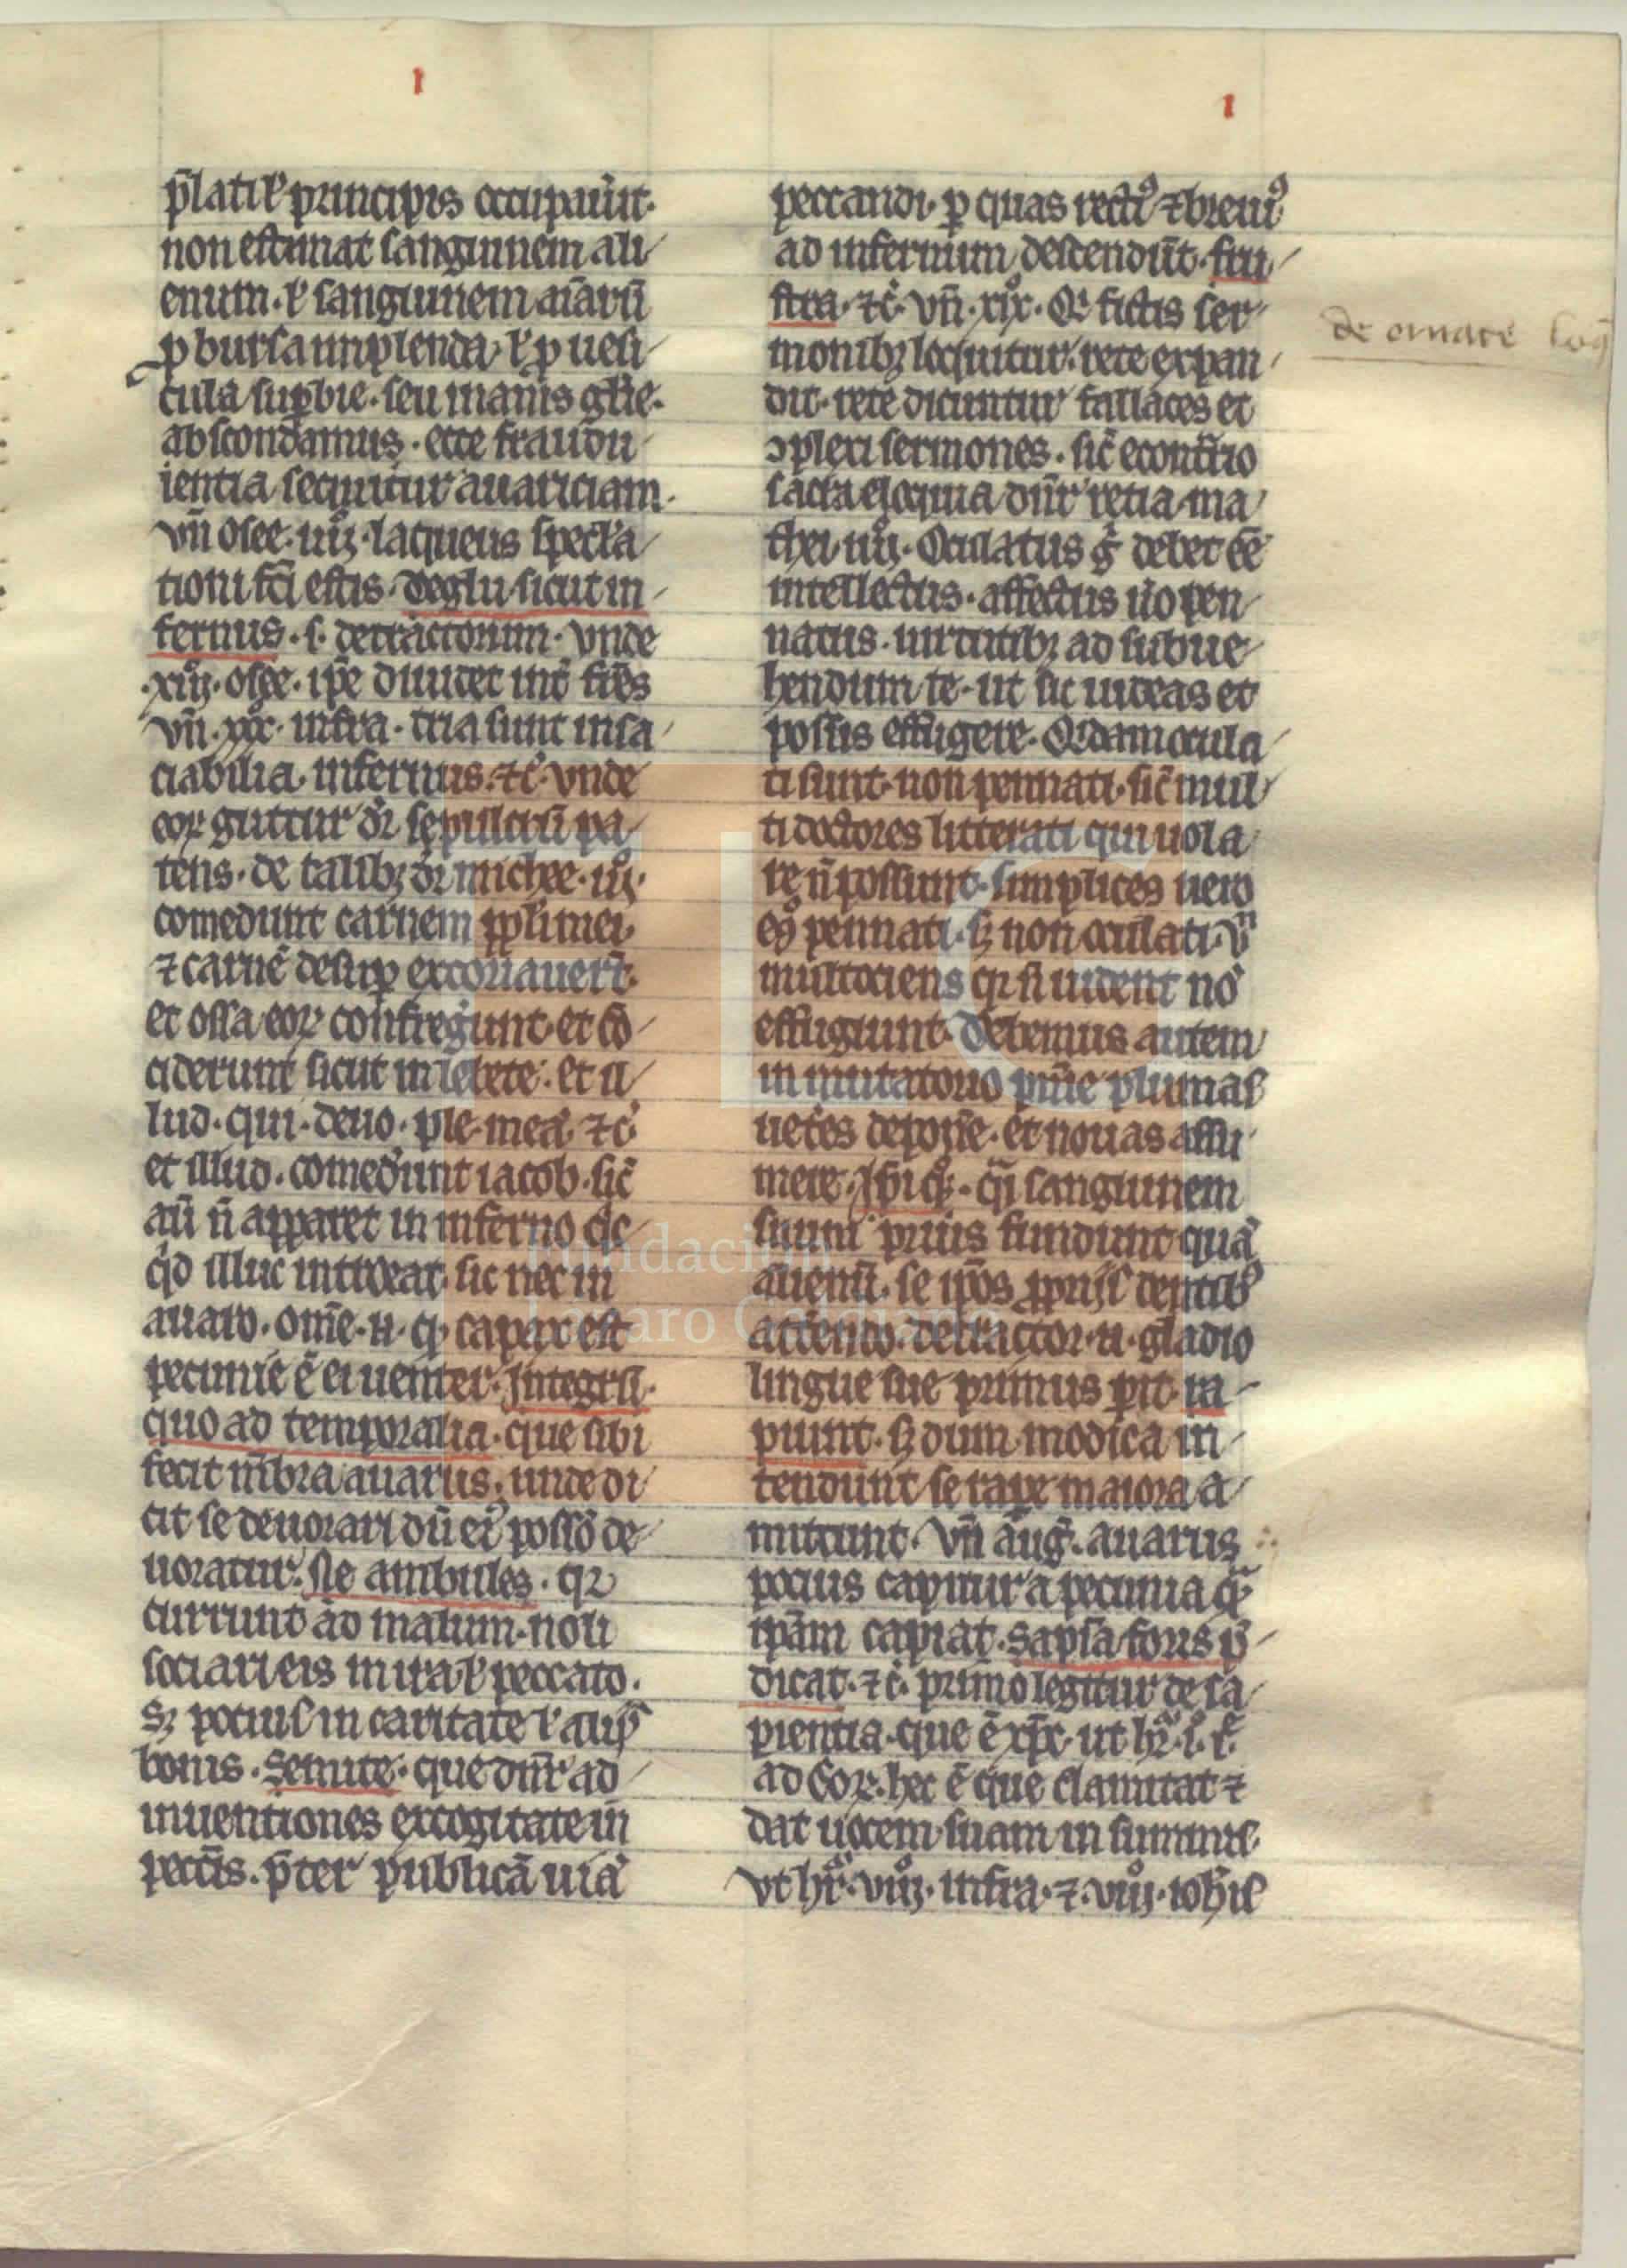 I
I
p̄lati ł principis occupaůit·
non estimat sanguinem ali
enum· ł sanguinem aīarū
p bursa implenda· ł p uesi
cula supbie· seu inanis glīe·
abscondamus· ecce fraudu
lentia sequitur auariciam·
vn̄ osee· laqueus specła
tioni fc̄i estis· deglu· sicut in
fernus· s· detractorum· vnde
·xiij· osee· ip̄e diuidet int̄ fr̄es
vn̄·xxx· infra· tria sunt insa
ciabilia· infernus· ⁊c̄· vnde
eoꝝ guttur dr̄ sepulcrū pa
tens· de talibꝫ dr̄ michee·iij·
comedunt carnem ppl̄i mei·
⁊ carnē desup excoriauerūt·
et ossa eoꝝ confregunt· et cō
ciderunt sicut in lebete· et il
lud· qui· deuo· ple· meā· ⁊c̄
et illud· comedunt iacob· sic̄
aū n̄ apparet in inferno
qd illuc introeat· sic nec in
auaro· ōme· n̄· qͥ capax est
pecunie ē ei uenter· Integrū·
quo ad temporalia· que sibi
fecit mēbra auarus· unde di
cit se deuorari dū eiꝰ possō de
uoratur· Ne ambules· qꝛ
currunt ad malum· noli
sociari eis in uia ł peccato·
Sꝫ pocius in caritate ł alijs
bonis· Semite· que dn̄r ad
inuentiones excogitate in
peccīs· p̄ter publicā uiā
peccandi· p quas rectiꝰ ⁊ breuiꝰ
ad infernum descendūt· fru
stra· ⁊c̄· vn̄·xix· Qͥ fictis ser
monibꝫ loquitur· rete expan
dit· rete dicuntur fallaces et
ɔplexi sermones· sic̄ econtrͣio
sacra eloquia dn̄r retia· ma
thei·iiij· Oculatus gͦ debet eē
intellectus· affectus u̇o pen
natus· uirtutibꝫ ad subue
hendum te· ut sic uideas et
possis effugere· Qͥdam ocula
ti sunt· non pennati· sic̄ mul
ti doctores litterati qui uola
re n̄ possunt· simplices uero
eͦꝯ pennati· sꝫ non oculati· vn̄
multociens qꝛ n̄ uident nō
effugiunt· Debemus autem
in mutatorio pn̄ie plumas
uet̄es depon̄e· et nouas assu
mere· Ipi qͦꝫ· qꝛ sanguinem
suum prius fundunt quā
alienū· se ip̄os pprijs dentibꝰ
attēndo· detractor· n̄· gladio
lingue sue primus pit· ra
piunt· sꝫ dum modica in
tendunt se rape maiora a
mittunt· Vn̄ auḡ· auarus
pocius capitur a pecunia qͣ
ip̄am capiat· Sapīa foris p̄
dicat· ⁊c̄· primo legitur de sa
pientia· que ē xp̄c· ut hr̄·i·
ad Coꝝ· hec ē que clamitat ⁊
dat uocem suam in summis·
vt hr̄·viij· infra· ⁊·viij· ioh̄is
de ornate loq̄
Fundación
Lázaro Galdiano